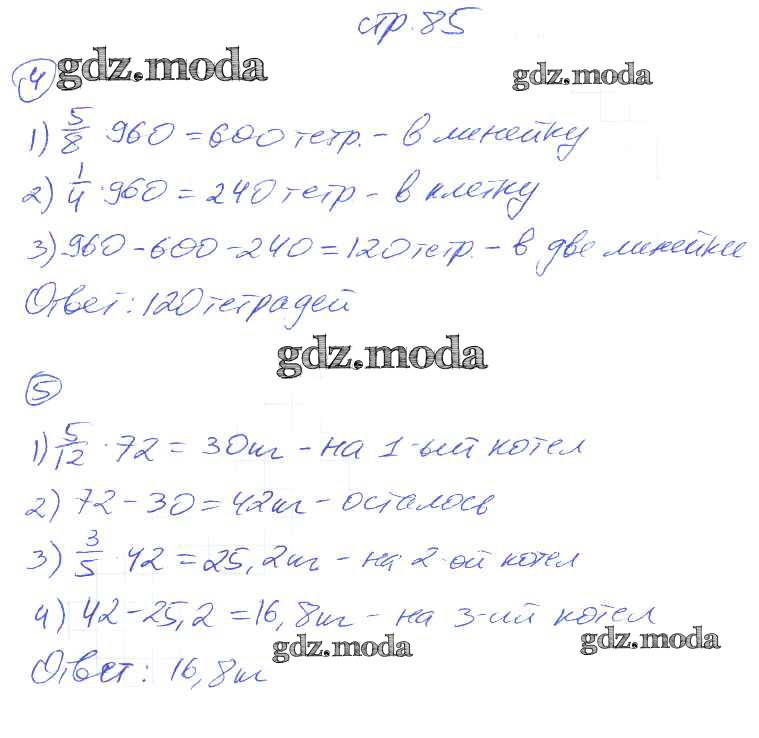 стр. 85
4 gdz.moda gdz.moda
1) 5/8 · 960 = 600 тетр. - в линейку
2) 1/4 · 960 = 240 тетр - в клетку
3) 960 - 600 - 240 = 120 тетр. - в две линейки
Ответ: 120 тетрадей
gdz.moda
5
1) 5/12 · 72 = 30 кг - на 1-ый котел
2) 72 - 30 = 42 кг - осталось
3) 3/5 · 42 = 25,2 кг - на 2-ой котел
4) 42 - 25,2 = 16,8 кг - на 3-ий котел
gdz.moda gdz.moda
Ответ: 16,8 кг